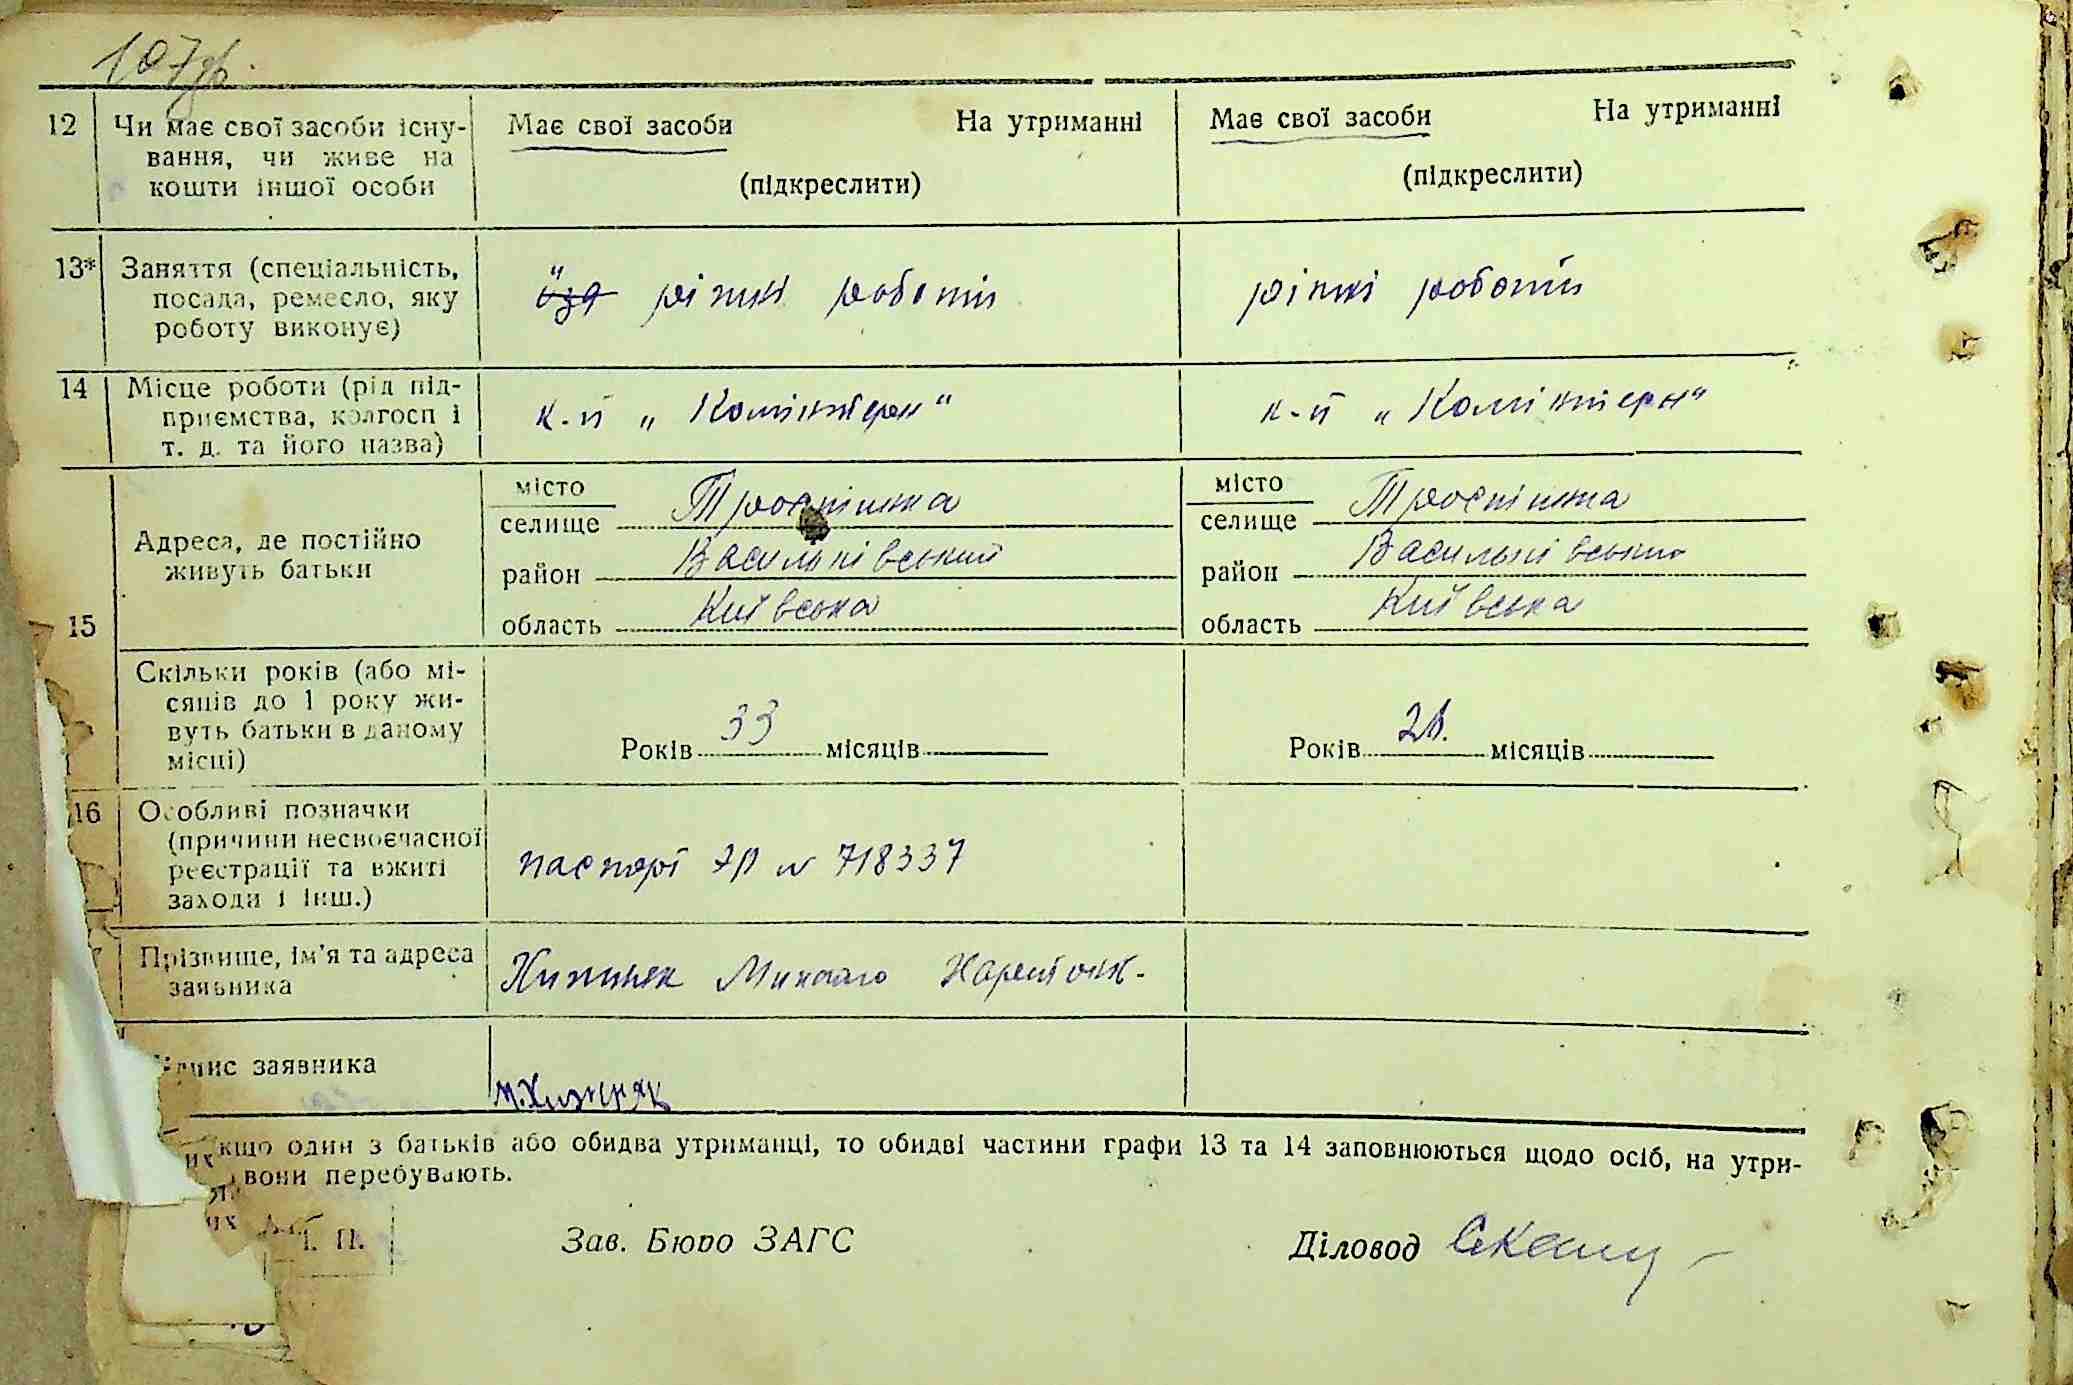 107зв.
12 Чи має свої засоби існу-
вання, чи живе на
кошти іншої особи
Має свої засоби На утриманні
(підкреслити)
Має свої засоби На утриманні
(підкреслити)
13* Заняття (спеціальність,
посада, ремесло, яку
роботу виконує)
різні роботи
різні роботи
14 Місце роботи (рід під-
приємства, колгосп і
т. д. та його назва)
к-п „Комінтерн"
к-п „Комінтерн"
15
Адреса, де постійно
живуть батьки
місто
селище Тростинка
район Васильківський
область Київська
місто
селище Тростинка
район Васильківський
область Київська
Скільки років (або мі-
сяців до 1 року жи-
вуть батьки в даному
місці)
Років 33 місяців
Років місяців
16 Особливі позначки
(причини несвоєчасної
реєстрації та вжиті
заходи і інш.)
паспорт № 718337
Прізвище, ім'я та адреса
заявника
Хижняк Микола Харитон.
дпис заявника
М. Хижняк
кщо один з батьків або обидва утриманці, то обидві частини графи 13 та 14 заповнюються щодо осіб, на утри-
вони перебувають.
П.
Зав. Бюро ЗАГС
Діловод